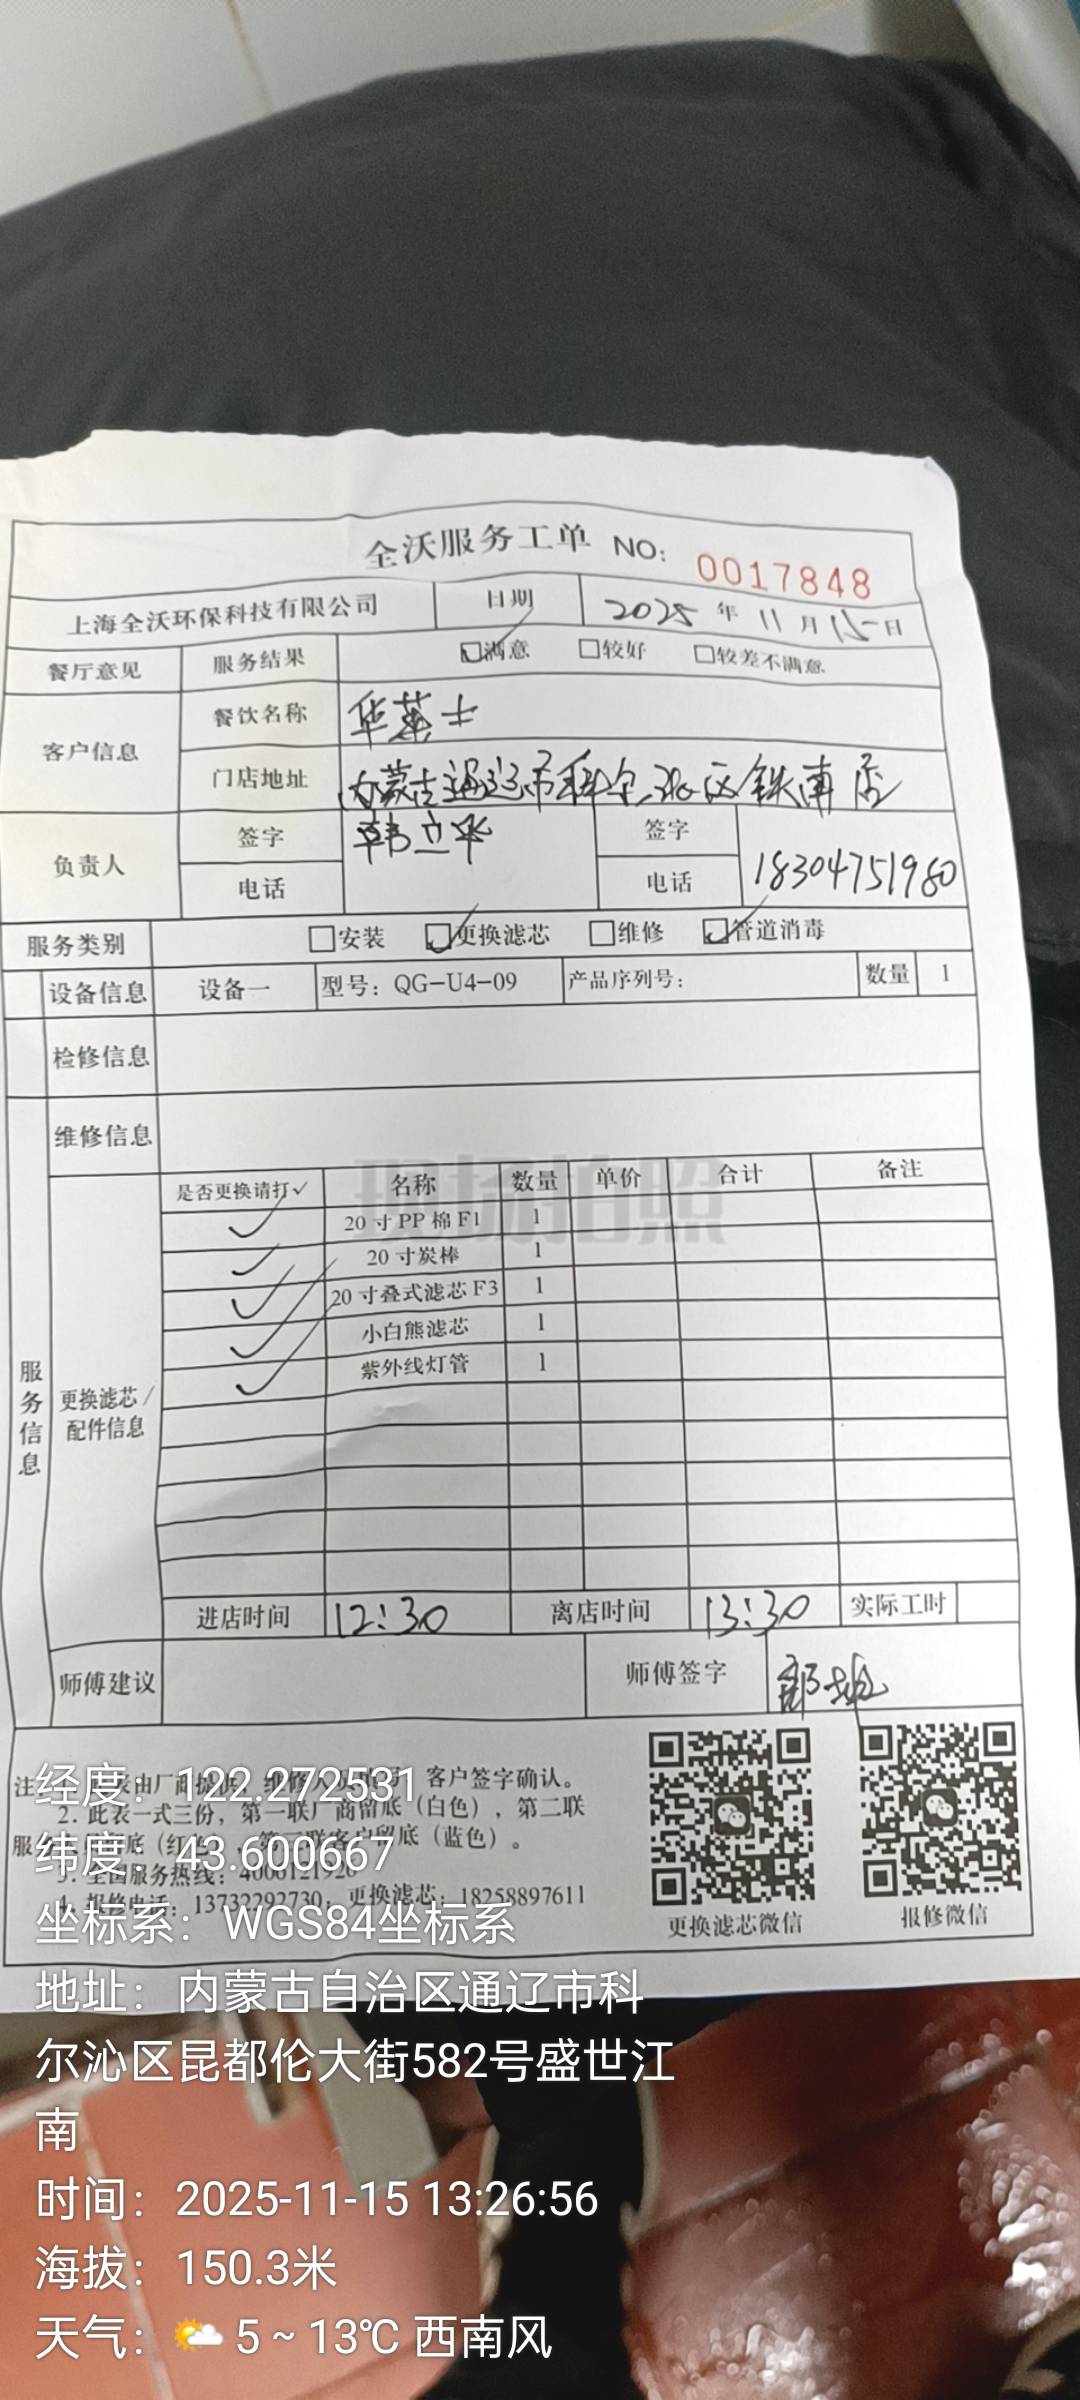 全沃服务工单 NO: 0017848
上海全沃环保科技有限公司 日期 2025年11月15日
餐厅意见 服务结果 满意 较好 较差不满意
客户信息 餐饮名称 华莱士
门店地址 内蒙古通辽市科尔沁区铁南店
负责人 签字 韩立华 签字
电话 电话 18304751980
服务类别 安装 更换滤芯 维修 管道消毒
设备信息 设备一 型号：QG-U4-09 产品序列号： 数量 1
检修信息
维修信息
服务信息
更换滤芯/配件信息
是否更换请打✓ 名称 数量 单价 合计 备注
✓ 20寸PP棉F1 1
✓ 20寸炭棒 1
✓ 20寸叠式滤芯F3 1
✓ 小白熊滤芯 1
✓ 紫外线灯管 1
现场拍照
进店时间 12:30 离店时间 13:30 实际工时
师傅建议 师傅签字
注 由厂商提供，维修人员 客户签字确认。
2. 此表一式三份，第一联厂商留底（白色），第二联
服 底（红色） 第三联客户留底（蓝色）。
3. 全国服务热线：4000121920
4. 报修电话：13732292730，更换滤芯：18258897611
更换滤芯微信 报修微信
经度：122.272531
纬度：43.600667
坐标系：WGS84坐标系
地址：内蒙古自治区通辽市科
尔沁区昆都伦大街582号盛世江
南
时间：2025-11-15 13:26:56
海拔：150.3米
天气：5 ~ 13℃ 西南风